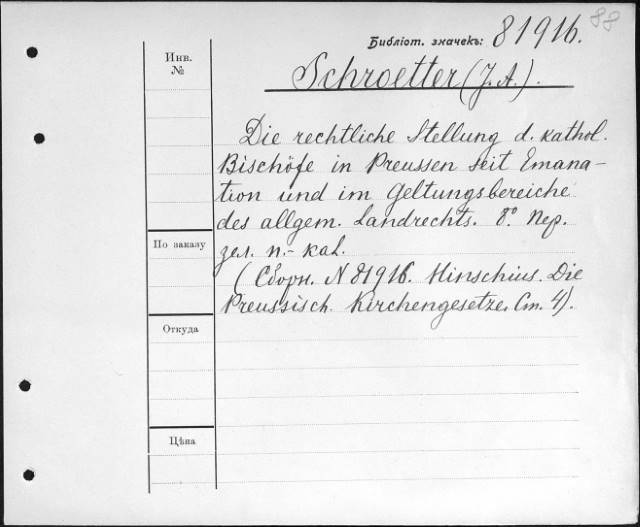 88
Библіот. значекъ: 81916.
Инв.
№
Schroetter (J. A.).
Die rechtliche Stellung d. kathol.
Bischöfe in Preussen seit Emana-
tion und im Geltungsbereiche
des allgem. Landrechts. 8° Пер.
зел. п.-кал.
(Сборн. N 81916. Hinschius. Die
Preussisch. Kirchengesetze. Ст. 4).
По заказу
Откуда
Цѣна